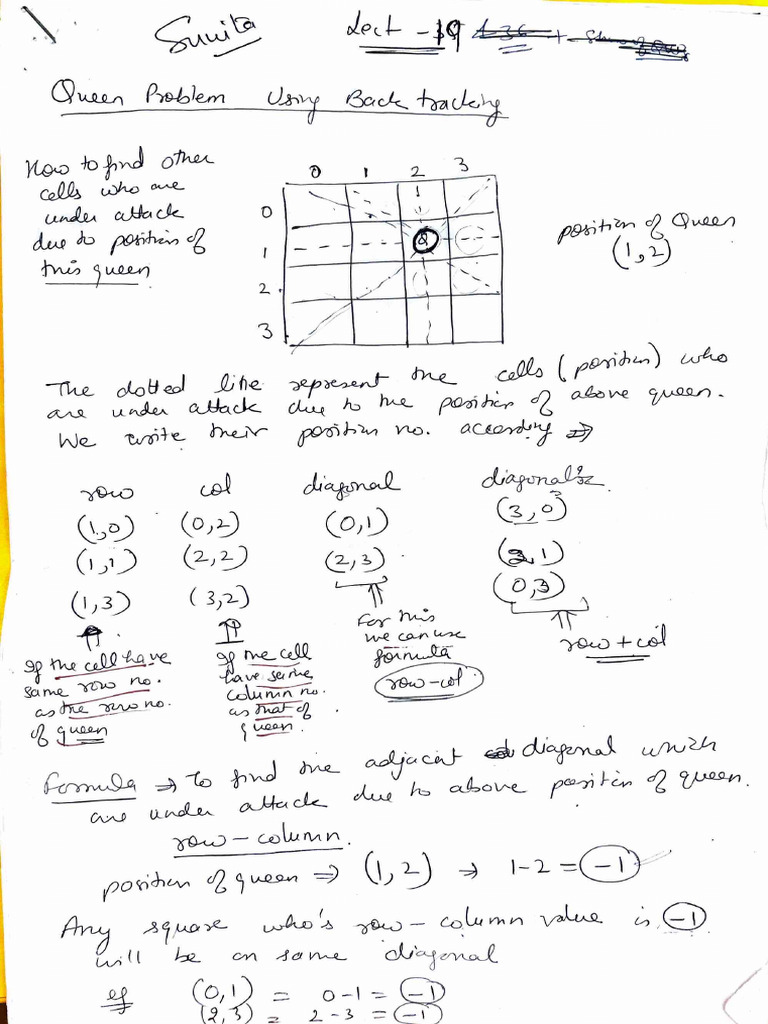 Sunita
Lect - 19
Queen Problem Using Back tracking
How to find other
cells who are
under attack
due to position of
this queen
0 1 2 3
0
1
2
3
Q
position of Queen
(1,2)
The dotted line represent the cells (position) who
are under attack due to the position of above queen.
We write their position no. according ⇒
row col diagonal diagonal 2
(1,0) (0,2) (0,1) (3,0)
(1,1) (2,2) (2,3) (2,1)
(1,3) (3,2) (0,3)
If the cell have
same row no.
as the row no.
of queen
If the cell
have same
column no.
as that of
queen.
For this
we can use
formula
row-col
row+col
Formula ⇒ To find the adjacent diagonal which
are under attack due to above position of queen.
row - column.
position of queen ⇒ (1,2) ⇒ 1-2 = -1
Any square who's row - column value is -1
will be on same diagonal
eg (0,1) = 0-1 = -1
(2,3) = 2-3 = -1